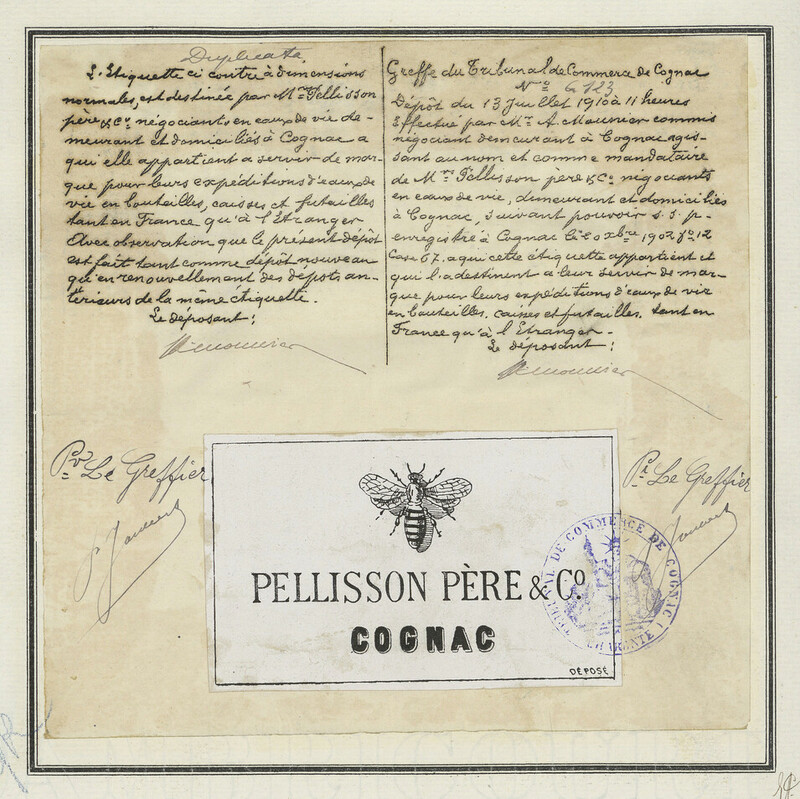 Duplicata
L'Etiquette ci contre à dimensions
normales, est destinée par Mrs Pellisson
père & Co négociants en eaux de vie de-
meurant et domiciliés à Cognac a
qui elle appartient a servir de mar-
que pour leurs expéditions d'eaux de
vie en bouteilles, caisses et futailles
tant en France qu'à l'Etranger
Avec observation que le présent dépôt
est fait tant comme dépôt nouveau
qu'en renouvellement des dépôts an-
térieurs de la même étiquette.
Le déposant:
Greffe du Tribunal de Commerce de Cognac
No 6123
Dépôt du 13 Juillet 1910 à 11 heures
Effectué par Mr A. Maunier commis
négociant demeurant à Cognac, agis-
sant au nom et comme mandataire
de Mrs Pellisson père & Co négociants
en eaux de vie, demeurant et domiciliés
à Cognac, suivant pouvoir s. s. p.
enregistré à Cognac le xbre 1902 fo 12
Case 67. a qui cette étiquette appartient et
qui l'a destinent à leur servir de mar-
que pour leurs expéditions d'eaux de vie
en bouteilles, caisses et futailles, tant en
France qu'à l'Etranger.-
Le déposant:
Pr Le Greffier
Pr Le Greffier
PELLISSON PÈRE & Co.
COGNAC
DÉPOSÉ
TRIBUNAL DE COMMERCE DE COGNAC
CHARENTE